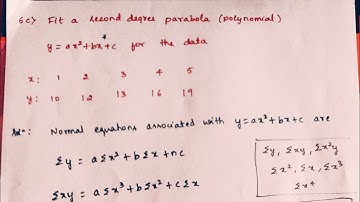 6c) Fit a second degree parabola (polynomial)
y = ax² + bx + c for the data
x: 1 2 3 4 5
y: 10 12 13 16 19
Normal equations associated with y = ax² + bx + c are
Σy = aΣx² + bΣx + nc
Σxy = aΣx³ + bΣx² + cΣx
Σy, Σxy, Σx²y
Σx², Σx, Σx³
Σx⁴